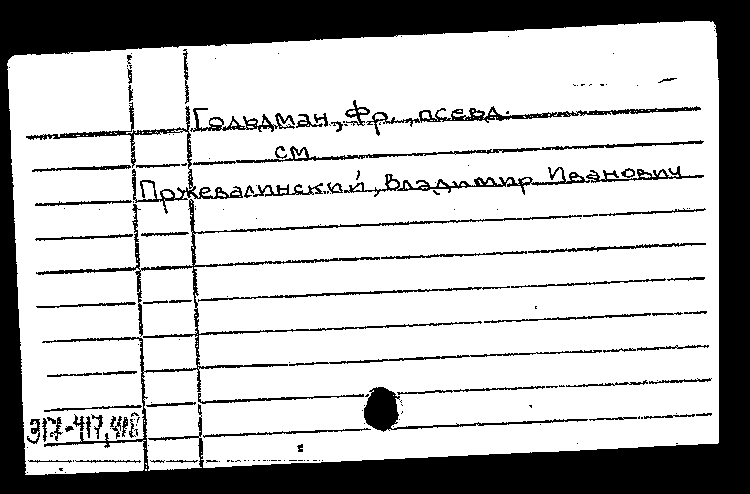 Гольдман, Фр., псевд.
см.
Пржевалинский, Владимир Иванович
317-417,418